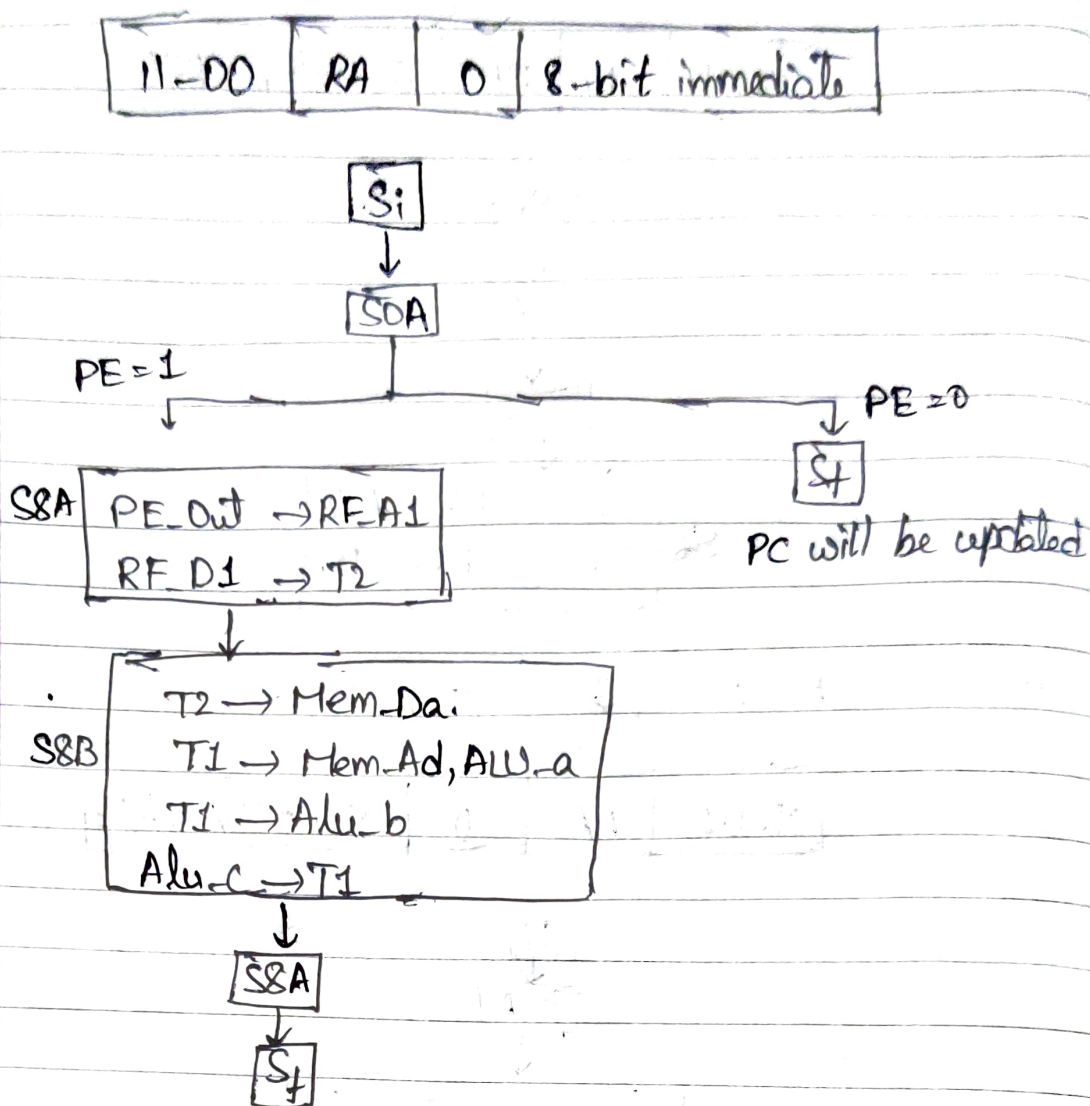 11-00 RA 0 8-bit immediate
Si
S0A
PE=1
PE=0
Sf
PC will be updated
S8A
PE_Out → RF_A1
RF_D1 → T2
S8B
T2 → Mem_Dai
T1 → Mem_Ad, ALU_a
T1 → Alu_b
Alu_c → T1
S8A
Sf